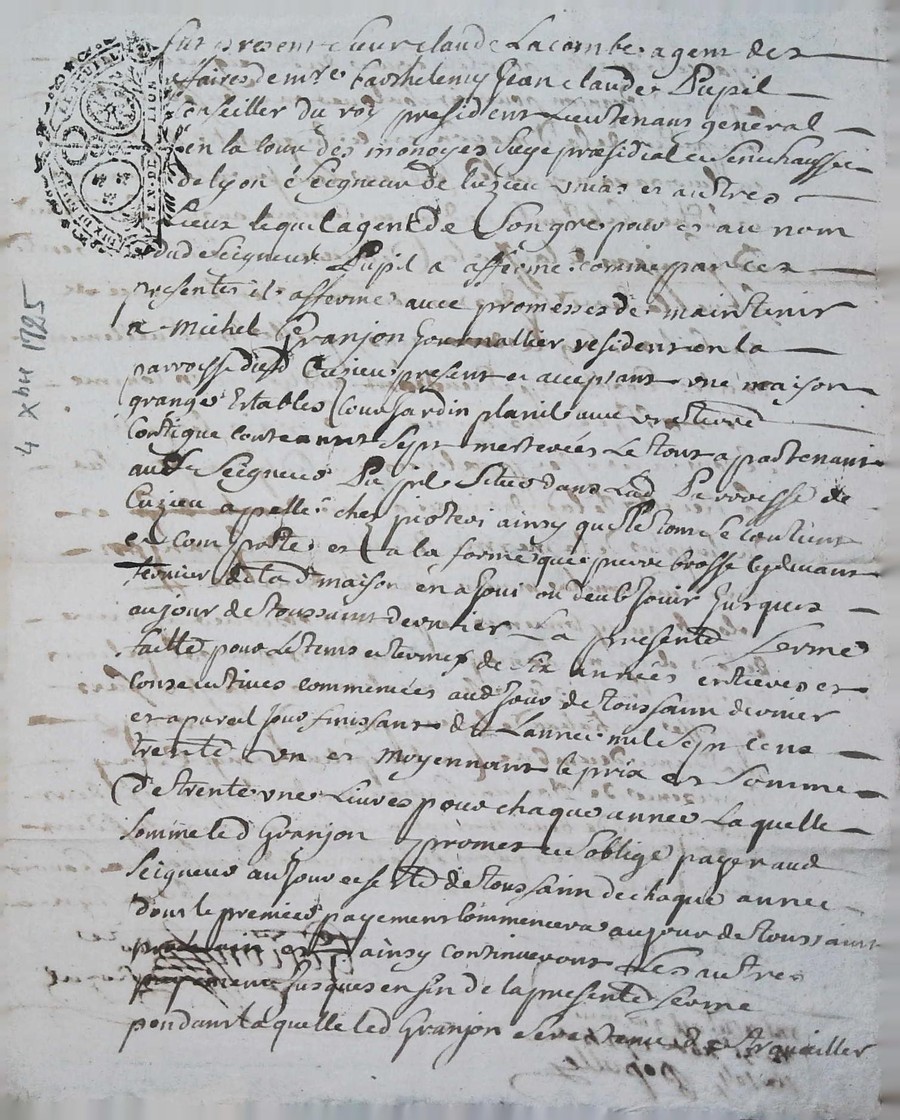 fut present sieur claude Lacombe agent des
affaires de mre barthelemy Jean claude Pupil
conseiller du roy president Lieutenant general
en la cour des monoyes siege presidial et senechaussee
de lyon et Seigneur de Cuzieu unias et autres
Lieux lequel agent de Son gre pour et au nom
dud Seigneur Pupil a afferme comme par ces
presentes il afferme avec promesses de maintenir
a Michel Granjon Journallier resident en la
parroisse dud Cuzieu present et acceptant une maison
grange Estables Cour Jardin avec une terre
Contigue contenant Sept mesterées Le tout apartenant
aud Seigneur Pupil Situé dans lad Parroisse de
Cuzieu apellé chez ainsy que Le tout Se Contient
et Comporte et a la forme que pierre brosse cydevant
fermier de lad maison en a Joui ou deub Jouir Jusques
au jour de toussaint dernier La presente ferme
faitte pour Le tems et terme de Six années entieres et
consecutives commencées aud Jour de toussaint dernier
et a pareil Jour finissant de L'année mil sept cent
trente un et moyennant le prix et Somme
de trente une Livres pour chaque année Laquelle
Somme led Granjon promet et s'oblige payer aud
Seigneur au Jour et feste de toussaint de chaque année
dont le premier payement commencera au jour de toussaint
prochain et ainsy continueront Les autres
payements Jusques en fin de la presente ferme
pendant laquelle led Granjon sera tenu de travailler
4 Xbre 1725